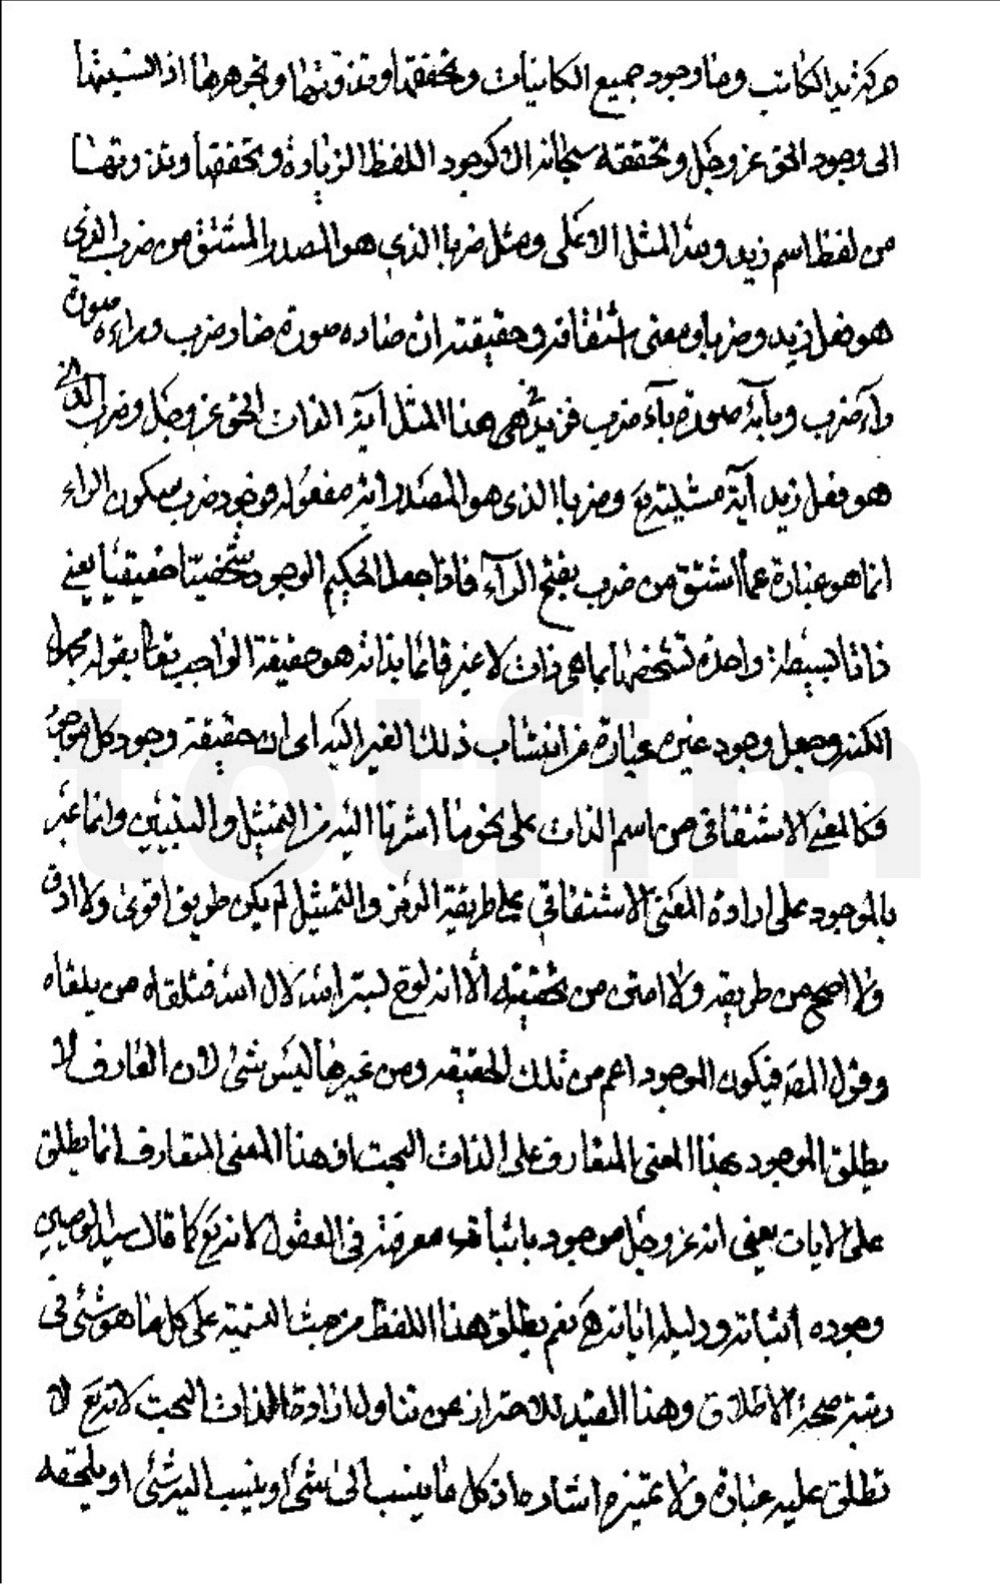 حركة يد الكاتب وما وجود جميع الكاينات وتحققها وتذوتها وتجوهرها اذا نسبتها
الى وجود الحق عز وجل وتحققه سبحانه الا كوجود اللفظ الزيادة وتحققها وتذوتها
من لفظ اسم زيد ولله المثل الاعلى ومثل ضربا الذي هو المصدر المشتق من ضرب الذى
هو فعل زيد وضربا ومعنى اشتقاقه وحقيقته ان ضاده صورة ضاد ضرب وراءه صورة
راء ضرب وباءه صورة باء ضرب فزيد فى هذا المثل آية الذات الحق عز وجل وضرب الذى
هو فعل زيد آية مشيته تع وضربا الذى هو المصدر اية مفعوله فوجود ضرب بسكون الراء
انما هو عبارة عما اشتق من ضرب بفتح الرآء فاذا جعل الحكيم الوجود شخصيّا حقيقيّا يعنى
ذاتا بسيطة واحدة تشخصها بما هى ذات لا غير قائما بذاته هو حقيقة الواجب تعالى بقوله مجهول
الكنه وجعل وجود غيره عبارة عن انتساب ذلك الغير اليه اى ان حقيقة وجود كل موجود
فكالمعنى الاشتقاقى من اسم الذات على نحو ما اشرنا اليه من التمثيل والتبيين وانما عبر
بالموجود على ارادة المعنى الاشتقاقي على طريقة الرمز والتمثيل لم يكن طريق اقوى ولا ادق
ولا اصح من طريقه ولا امتن من تحقيقه الا انه لوح لسر الله لال الله فتلقاه من يلقاه
وقول المصه فيكون الموجود اعم من تلك الحقيقه ومن غيرها ليس بشئ لان العارف لا
يطلق الموجود بهذا المعنى المتعارف على الذات البحت اذ هذا المعنى المتعارف انما يطلق
على الايات يعنى انه عز وجل موجود باثبات معرفته فى العقول لانه تع كما قال سيد الوصيين
وجوده اثباته ودليله اياته هـ نعم يطلق هذا اللفظ من حيث التسمية على كل ما هو شئ فى
رتبة صحة الاطلاق وهذا القيد للاحتراز عن تناول ارادة الذات البحت لانه تع لا
تطلق عليه عبارة ولا تميزه اشارة اذ كل ما ينسب الى شئ او ينسب اليه شئ او يلحقه